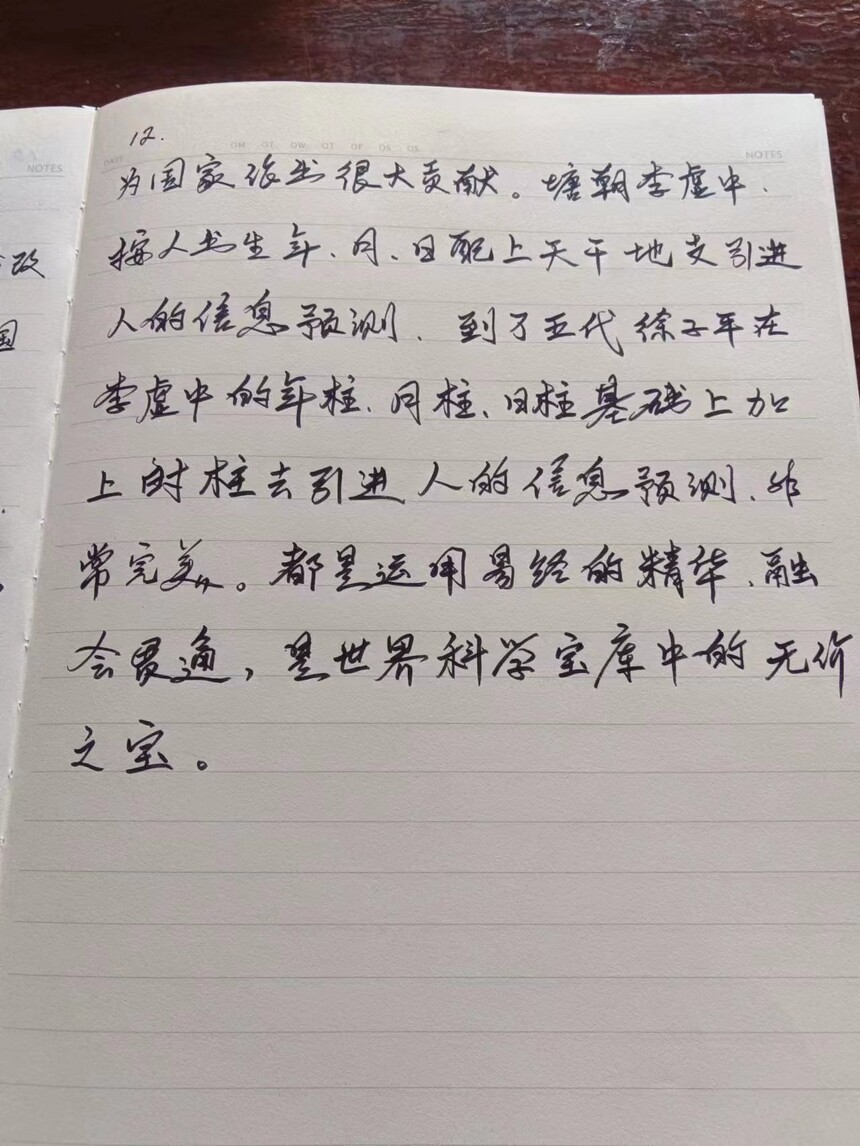 12.
DATE
NOTES
NOTES
为国家作出很大贡献。塘朝李虚中.
按人出生年、月、日配上天干地支引进
人的信息预测、到了五代徐子平在
李虚中的年柱、月柱、日柱基础上加
上时柱去引进人的信息预测、非
常完美。都是运用易经的精华、融
会贯通，是世界科学宝库中的无价
之宝。
改
国